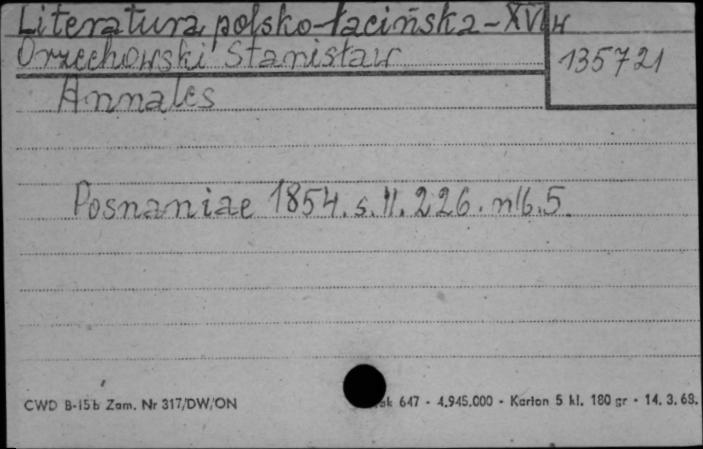 Literatura polsko-łacińska-XVI w
Orzechowski Stanisław
135721
Annales
Posnaniae 1854. s. II. 226. nlb. 5.
CWD B-15b Zam. Nr 317/DW/ON
647 - 4.945.000 - Karton 5 kl. 180 gr - 14. 3. 68.